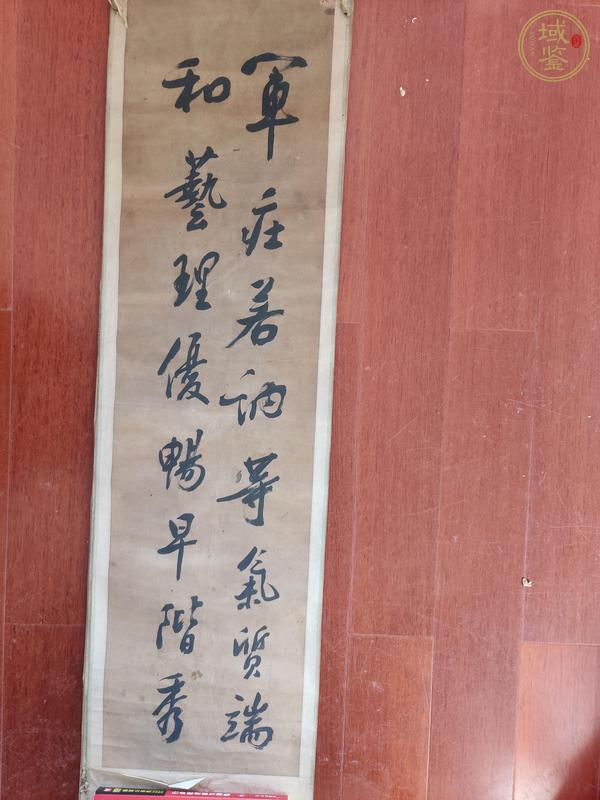 軍莊若訥等氣質端
和藝理優暢早階秀
域鑒